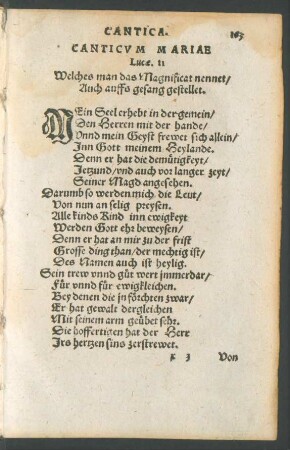 CANTICA. 163
CANTICVM MARIAE
Lucæ. ii
Welches man das Magnificat nennet/
Auch auffs gesang gestellet.
MEin Seel erhebt in der gemein/
Den Herren mit der hande/
Vnnd mein Geyst frewet sich allein/
Inn Gott meinem Heylande.
Denn er hat die demütigkeyt/
Jetzund/vnd auch vor langer zeyt/
Seiner Magd angesehen.
Darumb so werden mich die Leut/
Von nun an selig preysen.
Alle kinds Kind inn ewigkeyt
Werden Gott ehr beweysen/
Denn er hat an mir zu der frist
Grosse ding than/der mechtig ist/
Des Namen auch ist heylig.
Sein trew vnnd güt wert jmmerdar/
Für vnnd für ewigkleichen.
Bey denen die jn förchten zwar/
Er hat gewalt dergleichen
Mit seinem arm geübet sehr.
Die hoffertigen hat der Herr
Irs hertzen sins zerstrewet.
x 3 Von